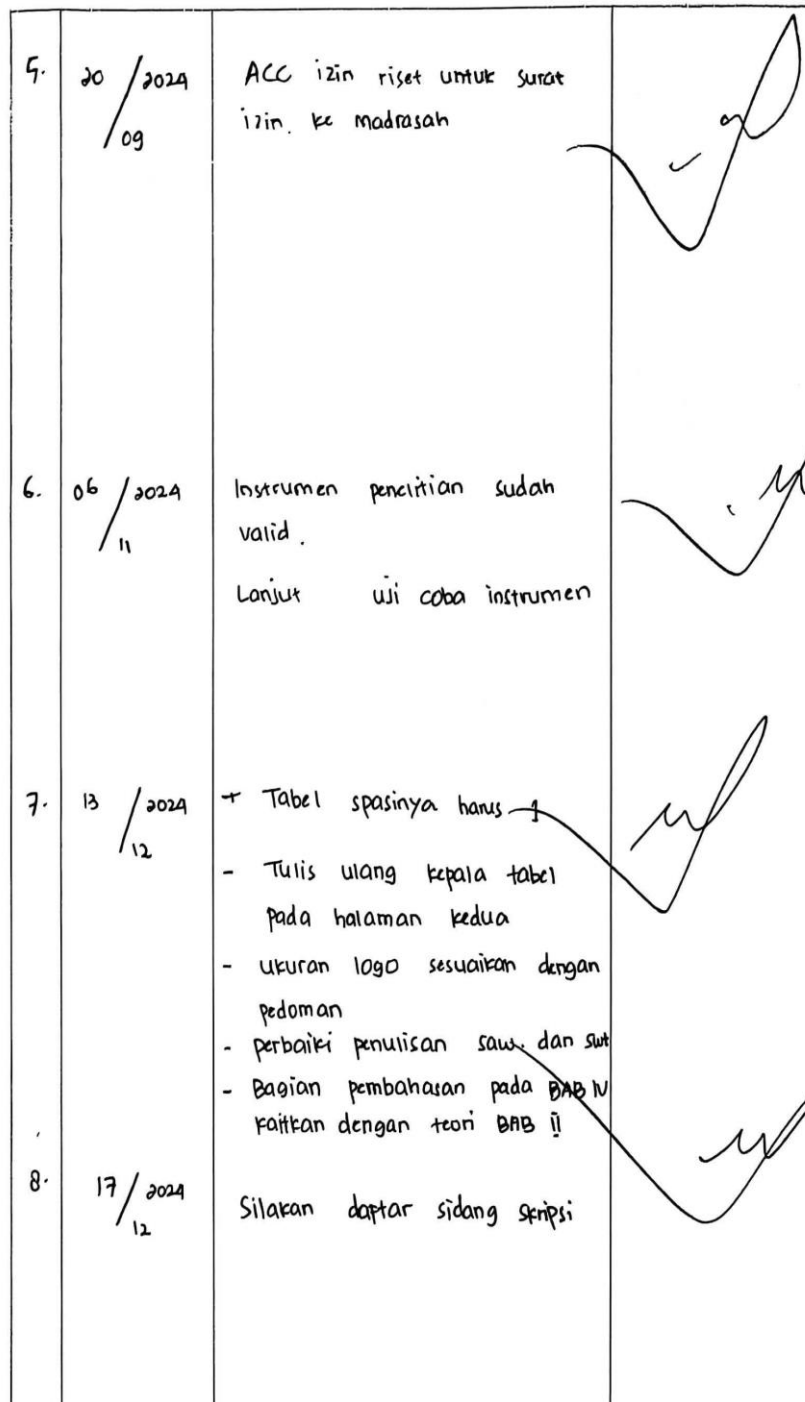 5. 20/2024 ACC izin riset untuk surat
/09 izin. ke madrasah
6. 06/2024 Instrumen penelitian sudah
/11 valid.
Lanjut uji coba instrumen
7. 13/2024 + Tabel spasinya harus 1
/12
- Tulis ulang kepala tabel
pada halaman kedua
- ukuran logo sesuaikan dengan
pedoman
- perbaiki penulisan saw. dan swt
- Bagian pembahasan pada BAB IV
kaitkan dengan teori BAB II
8. 17/2024 Silakan daptar sidang skripsi
/12